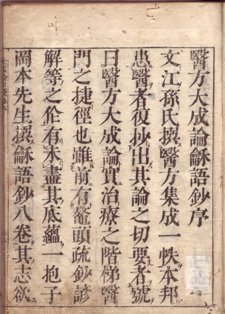 醫方大成論龢語鈔序
文江孫氏撰醫方集成一帙本邦
惠醫者復抄出其論之切要者號
曰醫方大成論實治療之階梯醫
門之捷徑也雖前有鼇頭疏鈔諺
解等之作有未盡其底蘊一抱子
岡本先生撰龢語鈔八卷其志欲